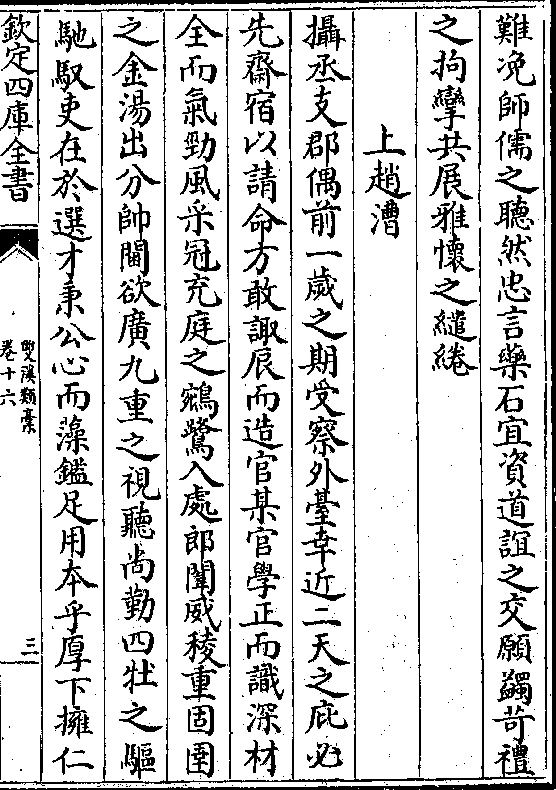 難免師儒之聽然忠言藥石宜資道誼之交願蠲苛禮
之拘攣共展雅懷之繾綣
上趙漕
攝丞支郡偶前一歲之期受察外臺幸近二天之庇必
先齋宿以請命方敢諏辰而造官某官學正而識深材
全而氣勁風采冠充庭之鵷鷺入處郎闈威稜重固圉
之金湯出分帥閫欲廣九重之視聽尚勤四牡之驅
馳馭吏在於選才秉公心而藻鑑足用本乎厚下擁仁
欽定四庫全書
雙溪類槀
卷十六
三